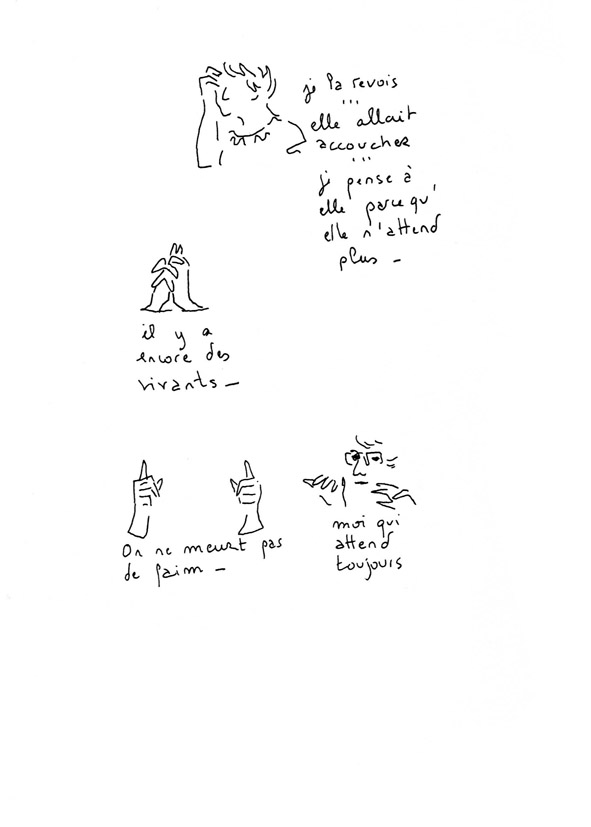 je la revois
...
elle allait
accoucher
...
je pense à
elle parce qu'
elle n'attend
plus –
il y a
encore des
vivants –
On ne meurt pas
de faim –
moi qui
attend
toujours